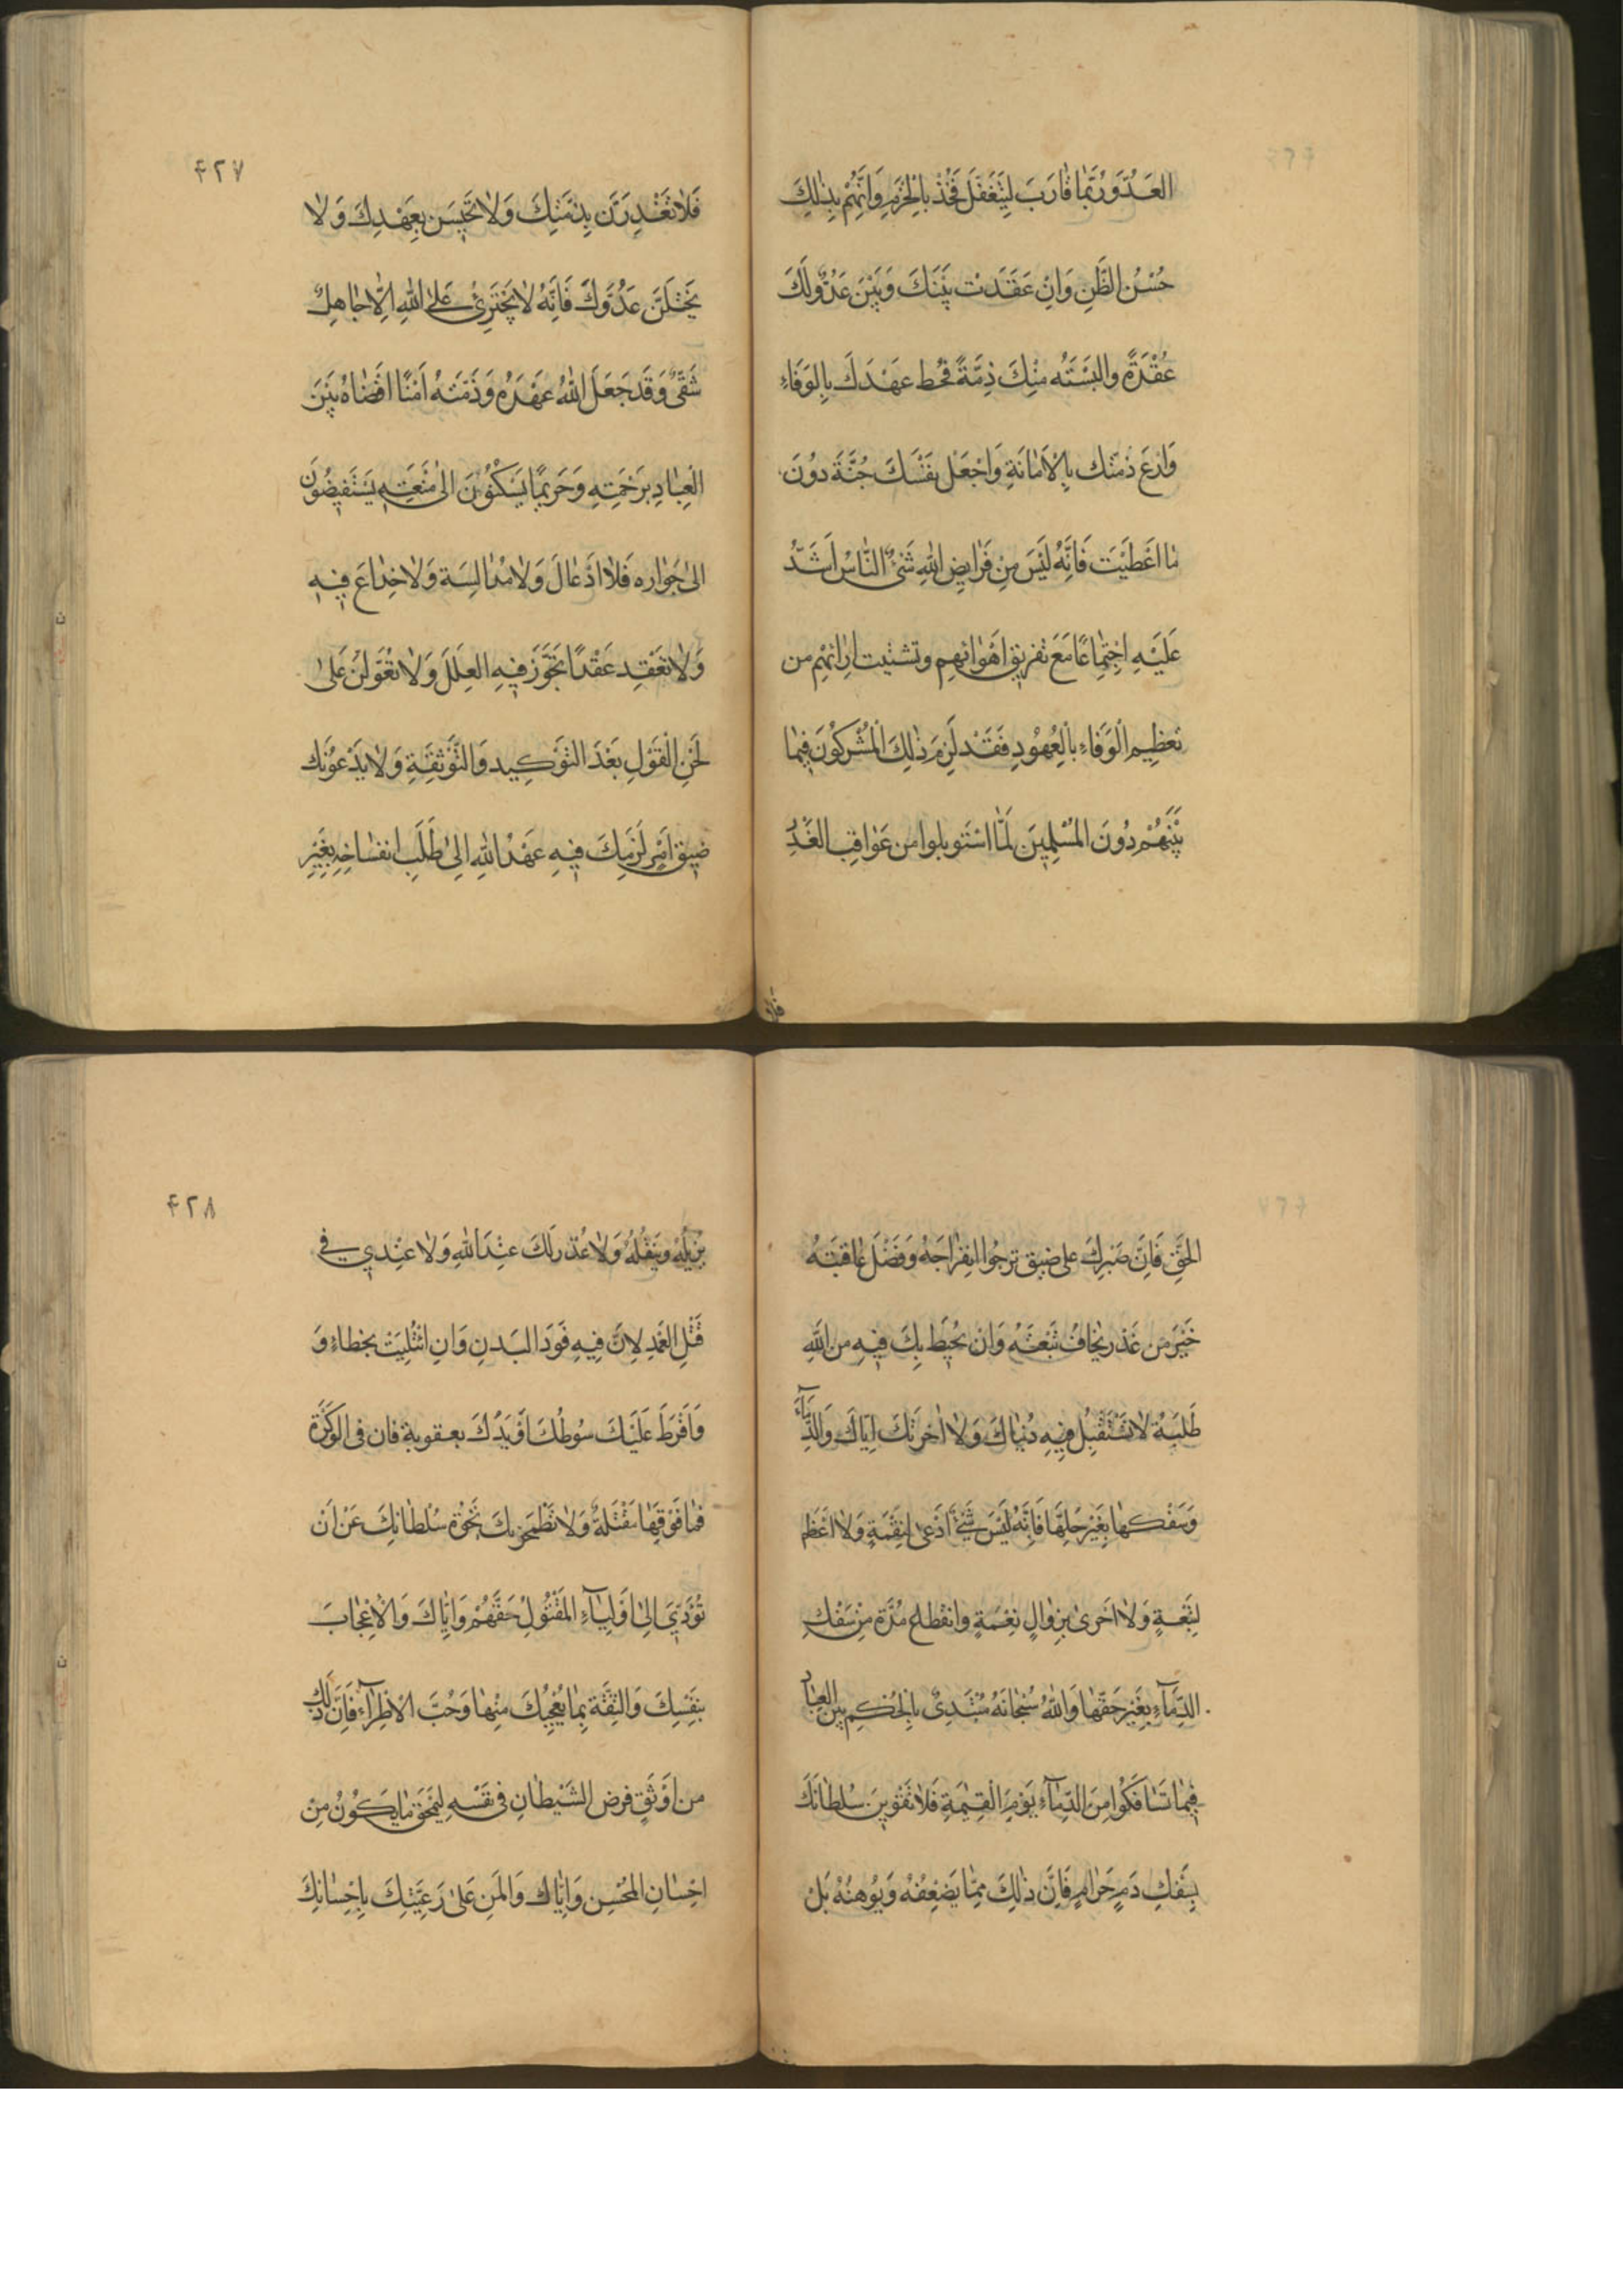 العَدُوَّ رُبَّمَا قَارَبَ لِيَتَغَفَّلَ فَخُذْ بِالْحَزْمِ وَاتَّهِمْ بِذٰلِكَ
حُسْنَ الظَّنِ وَاِنْ عَقَدَتْ بَيْنَكَ وَبَيْنَ عَدُوٍّ لَكَ
عُقْدَةً والبَسْتَهُ مِنْكَ ذِمَّةً فَحُط عَهْدَكَ بِالوَفَاءِ
وَارْعَ ذمَتك بِالْاَمَانَةِ وَاجْعَل نَفْسَكَ جُنَّةَ دوُنَ
مَا اعَطَيْتَ فَاِنَّهُ لَيْسَ مِنْ فَرَايضِ اللهِ شَيْءٌ النَّاسُ اَشَدُّ
عَلَيْهِ اجْتِمَاعًا مَعَ تفريقِ اَهْوَائهِم وتشتيت ارَائهِم من
تَعظِيمِ الْوَفَاءِ بِالْعُهُودِ فَقَدْ لَزِمَ ذٰلِكَ الْمُشْركُونَ فِيمَا
بَيْنَهُمْ دُونَ المُسْلِمِينَ لَمَّا اسْتَوبلوا من عَوَاقِبِ الغَدْرِ
فلا
۴۲۷
فَلاٰ تَغْدِرَنَّ بِذمَّتِكَ وَلاٰ تَخِيسَن بِعَهْدِكَ وَلاٰ
تَخْتلَنَّ عَدُوَّكَ فَاِنَّهُ لاٰ يَجْتَرِئُ عَلَى اللهِ اِلّا جَاهِلٌ
شَقِىٌّ وَقَد جَعَلَ اللهُ عَهْدَهُ وَذمَّتَهُ اَمْنًا افْضَاهُ بَيْنَ
الْعِبَادِ بِرَحْمَتِهِ وَحَرِيمًا يَسْكُنُونَ الىٰ مَنَعَتِهِ يَسْتَفِيضُونَ
الىٰ جَوَاره فَلاٰ ادْغَالَ وَلاٰ مُدَالسَة وَلاٰ خِدَاعَ فيهِ
وَلاٰ تَعْقِد عَقْدًا تَجَوَّزَ فيهِ العِلَلَ وَلاٰ تُعَوّلنَّ عَلىٰ
لَحْنِ الْقَوْلِ بَعْدَ التوْكِيدِ وَالتَّوْثِقَةِ وَلاٰ يَدْعُونَّك
ضيق اَمْرٍ لَزمَكَ فيهِ عَهْدُ اللهِ اِلىٰ طَلَبِ انفسَاخِهِ بِغَيْرِ
الحَقِّ فَاِنَّ صَبْرِكَ على ضيق ترجُوا انفِرَاجَهُ وَفَضْلَ عَاقبَتهُ
خَيْرٌ من غَدْر تخَافُ تَبْعَتَهُ وَاَنْ تحُيط بِكَ فيهِ من اللهِ
طَلبَهٌ لاٰ تَسْتَقْبِلُ فيهِ دُنيَاكَ وَلاٰ اٰخرَتكَ اِيّاكَ وَالدِّمَاءَ
وَسَفْكهَا بِغَيْرِ حَلِّهَا فَاِنَّهُ لَيْسَ شَيْءٌ اَدْعىٰ لِنِقْمَةٍ وَلاٰ اَعْظَمَ
لِتَبِعَةٍ وَلاٰ اَحَرىٰ بِزوالٍ نِعْمَةٍ وَانقطاعِ مُدَّة مِنْ سَفْكِ
الدّمَآءِ بِغَيْرِ حَقّهَا وَاللهُ سُبْحَانَهُ مُبْتَدِئٌ بِالْحُكْمِ بين العِبَادِ
فِيمَا تسَافَكُوا مِنَ الدِّمَآءِ يَوْمَ الْقِيٰمَةِ فَلاٰ تقْوِينَ سُلطانَكَ
بِسَفْكِ دَمٍ حَرَامٍ فَاِنَّ ذٰلِكَ مِمّا يَضْعِفهُ وَيُوهِنُهُ بَلْ
۴۲۸
يُزيلُه وَيَنْقُلُهُ وَلاٰ عُذْرَ لَكَ عِنْدَ اللهِ وَلاٰ عِنْدِي فِي
قَتْلِ العَمْدِ لِاَنَّ فيهِ قَوَدَ البَدنِ وَاِنِ ابْتُلِيْتَ بخطاءٍ وَ
وَافْرَطَ عَلَيْكَ سُوطُكَ اَوْ يَدُكَ بعقوبة فان فى الوَكْزَة
فَمَا فَوْقَهَا مَقْتَلَةٌ وَلاٰ تَطْمَحَنَّ بكَ نَخْوَة سُلطَانِكَ عَنْ اَنْ
تُؤَدِّيَ اِلىٰ اَوْلِيَآءِ المَقْتُولِ حَقَّهُمْ وَاِيَّاكَ وَالْاِعْجَابَ
بِنَفْسِكَ وَالثِقَةَ بِمَا يُعْجِبُكَ مِنْهَا وَحُبَّ الْاطِرآءِ فَاِنَّ ذٰلِكَ
من اَوْثَقِ فرص الشَيْطَانِ فى نَفْسِهِ لِيَمْحَقَ مَا يَكُونُ مِنْ
اِحْسَانِ المُحْسِنِ وَاِيَّاكَ وَالْمَنّ عَلىٰ رَعِيَّتِكَ بِاِحْسَانِكَ